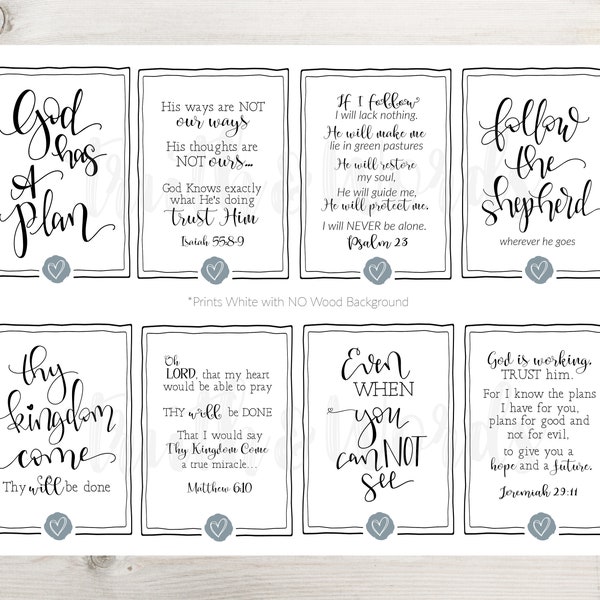 God
has
A
plan
His ways are NOT
our ways
His thoughts are
NOT ours...
God Knows exactly
what He's doing
trust Him
Isaiah 55:8-9
If I follow
I will lack nothing.
He will make me
lie in green pastures
He will restore
my soul,
He will guide me,
He will protect me.
I will NEVER be alone.
Psalm 23
follow
the
shepherd
wherever he goes
*Prints White with NO Wood Background
thy
kingdom
come
Thy will be done
Oh
LORD, that my heart
would be able to pray
THY will be DONE
That I would say
Thy Kingdom Come
a true miracle...
Matthew 6:10
Even
WHEN
you
can NOT
see
God is working.
TRUST him.
For I know the plans
I have for you,
plans for good and
not for evil,
to give you a
hope and a future.
Jeremiah 29:11